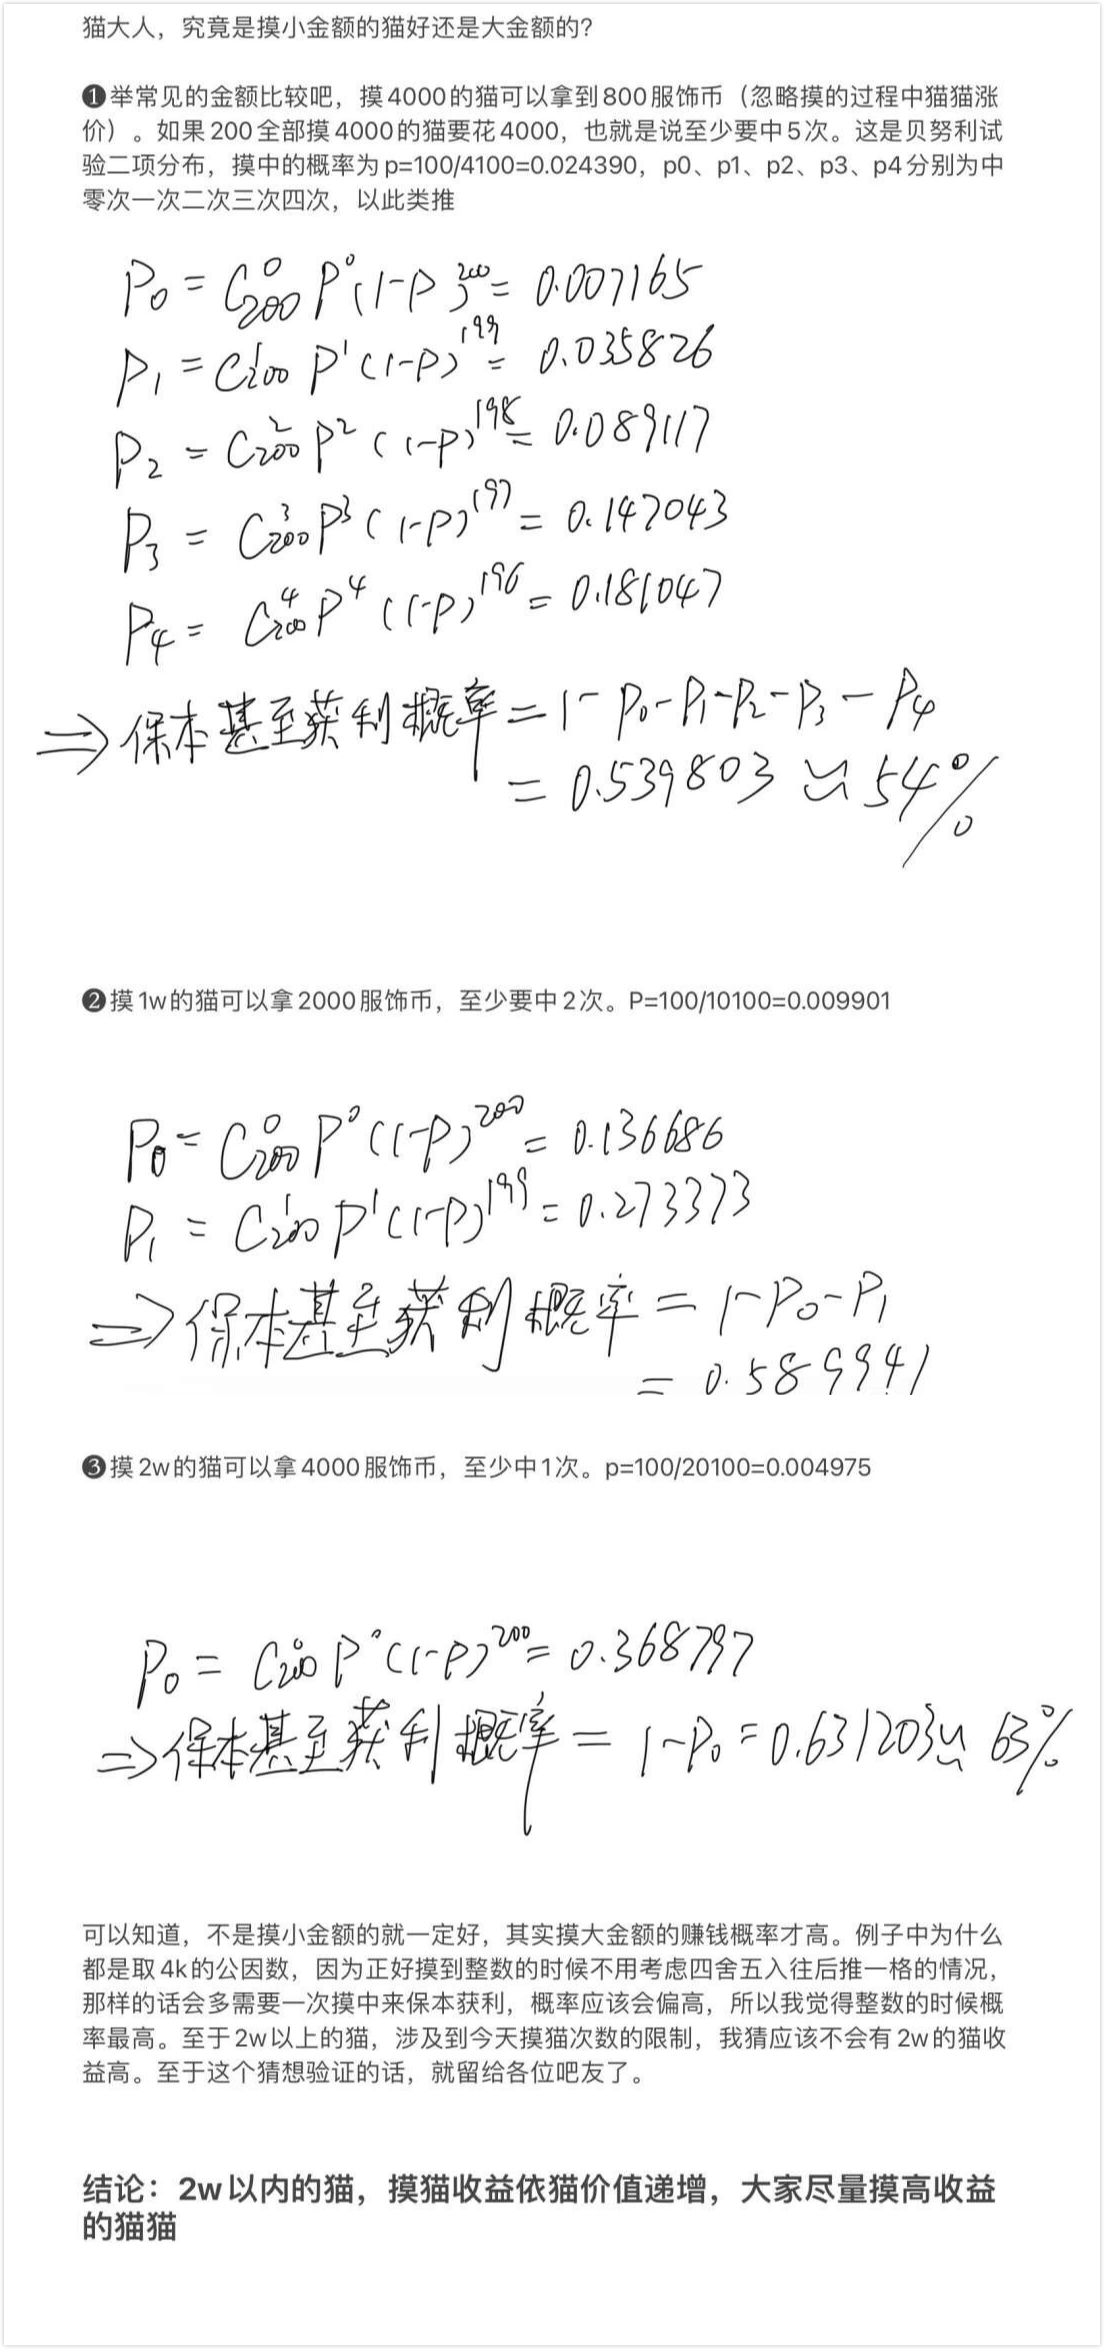 猫大人，究竟是摸小金额的猫好还是大金额的？
❶举常见的金额比较吧，摸4000的猫可以拿到800服饰币（忽略摸的过程中猫猫涨
价）。如果200全部摸4000的猫要花4000，也就是说至少要中5次。这是贝努利试
验二项分布，摸中的概率为p=100/4100=0.024390，p0、p1、p2、p3、p4分别为中
零次一次二次三次四次，以此类推
P₀ = C₂₀₀⁰ P⁰(1-P)²⁰⁰ = 0.007165
P₁ = C₂₀₀¹ P¹(1-P)¹⁹⁹ = 0.035826
P₂ = C₂₀₀² P²(1-P)¹⁹⁸ = 0.089117
P₃ = C₂₀₀³ P³(1-P)¹⁹⁷ = 0.147043
P₄ = C₂₀₀⁴ P⁴(1-P)¹⁹⁶ = 0.181047
⇒保本甚至获利概率=1-P₀-P₁-P₂-P₃-P₄
= 0.539803 ≈ 54%
❷摸1w的猫可以拿2000服饰币，至少要中2次。P=100/10100=0.009901
P₀ = C₂₀₀⁰ P⁰(1-P)²⁰⁰ = 0.136686
P₁ = C₂₀₀¹ P¹(1-P)¹⁹⁹ = 0.273373
⇒保本甚至获利概率 = 1-P₀-P₁
= 0.589941
❸摸2w的猫可以拿4000服饰币，至少中1次。p=100/20100=0.004975
P₀ = C₂₀₀⁰ P⁰(1-P)²⁰⁰ = 0.368797
⇒保本甚至获利概率 = 1-P₀ = 0.631203 ≈ 63%
可以知道，不是摸小金额的就一定好，其实摸大金额的赚钱概率才高。例子中为什么
都是取4k的公因数，因为正好摸到整数的时候不用考虑四舍五入往后推一格的情况，
那样的话会多需要一次摸中来保本获利，概率应该会偏高，所以我觉得整数的时候概
率最高。至于2w以上的猫，涉及到今天摸猫次数的限制，我猜应该不会有2w的猫收
益高。至于这个猜想验证的话，就留给各位吧友了。
结论：2w以内的猫，摸猫收益依猫价值递增，大家尽量摸高收益
的猫猫